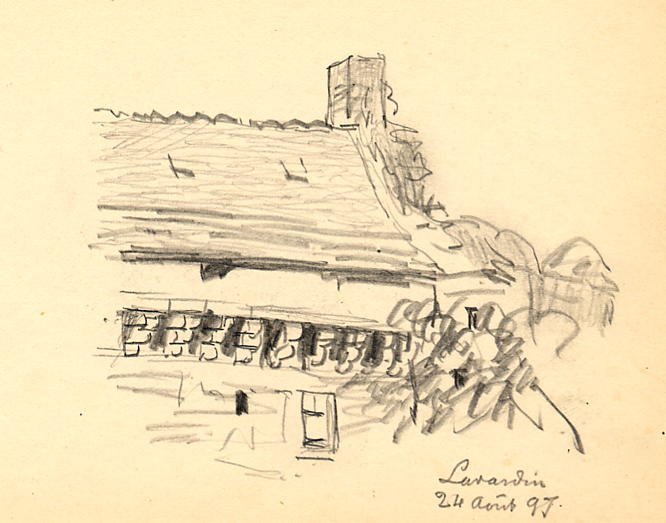 Lavardin
24 Août 97.